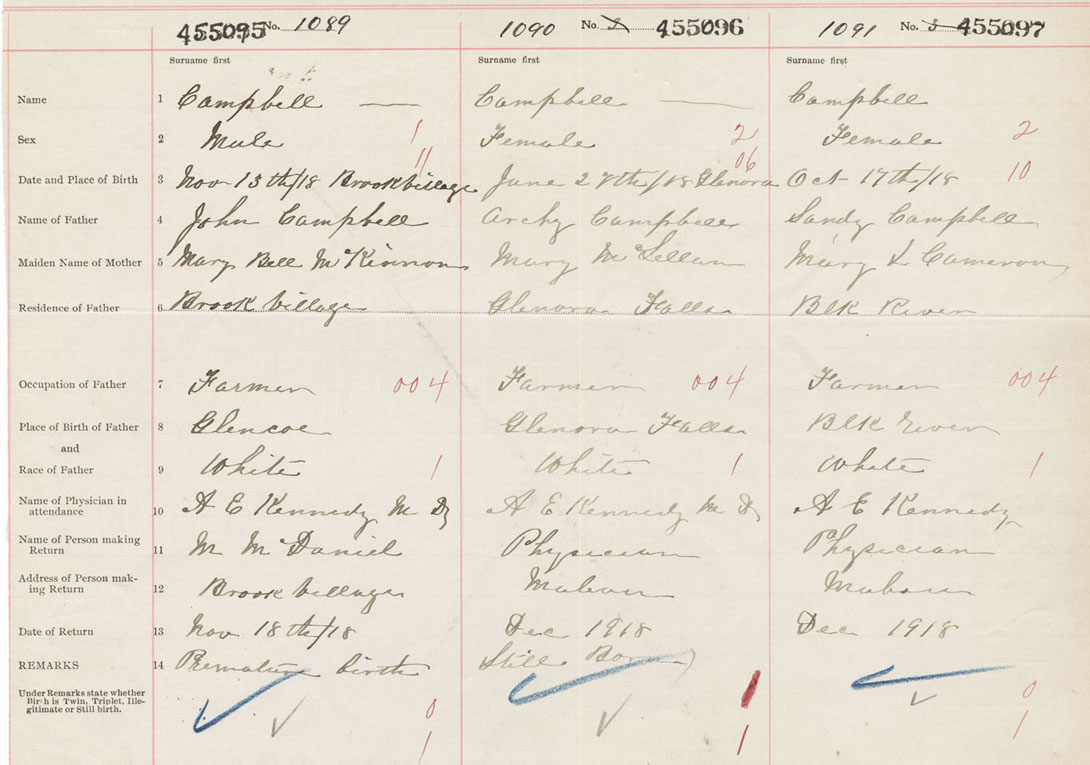 455095 No. 1089 1090 No. 3 455096 1091 No. 3 455097
Surname first Surname first Surname first
Name 1 Campbell — Campbell — Campbell
Sex 2 Male 1 Female 2 Female 2
11 06
Date and Place of Birth 3 Nov 13th/18 Brook Village June 27th/18 Glenora Oct 17th/18 10
Name of Father 4 John Campbell Archy Campbell Sandy Campbell
Maiden Name of Mother 5 Mary Bell McKinnon Mary McLellan Mary L Cameron
Residence of Father 6 Brook Village Glenora Falls Blk River
Occupation of Father 7 Farmer 004 Farmer 004 Farmer 004
Place of Birth of Father 8 Glencoe Glenora Falls Blk River
and
Race of Father 9 White 1 White 1 White 1
Name of Physician in
attendance 10 A E Kennedy M D A E Kennedy M D A E Kennedy
Name of Person making
Return 11 M McDaniel Physician Physician
Address of Person mak-
ing Return 12 Brook Village Mabou Mabou
Date of Return 13 Nov 18th/18 Dec 1918 Dec 1918
REMARKS 14 Premature birth Still Born
Under Remarks state whether
Birth is Twin, Triplet, Ille-
gitimate or Still birth. 0 1 0
1 1 1